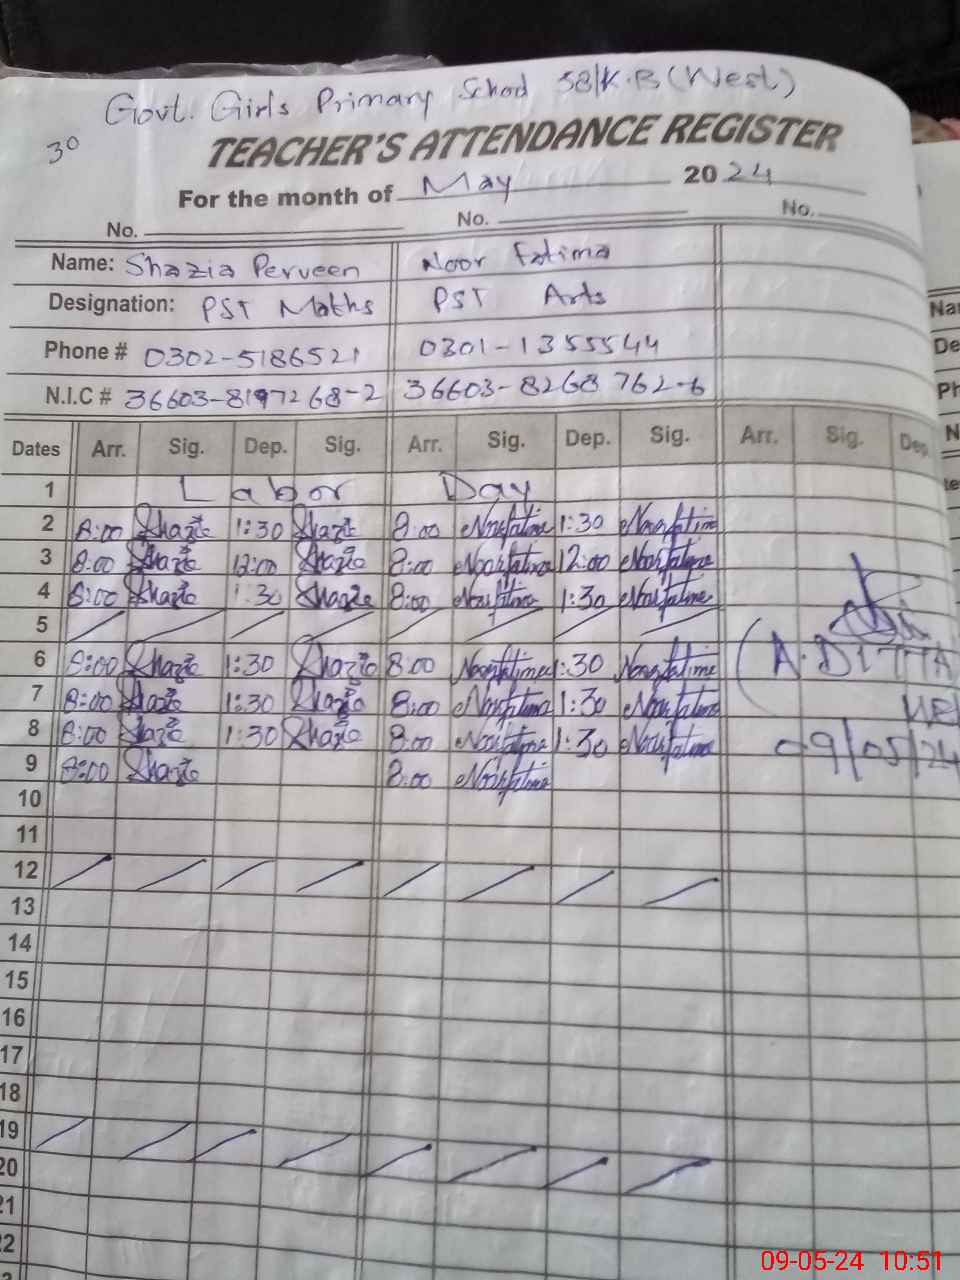 Govt. Girls Primary School 58/K.B (West)
30
TEACHER'S ATTENDANCE REGISTER
For the month of May 2024
No. No. No.
Name: Shazia Perveen Noor Fatima
Designation: PST Maths PST Arts
Phone # 0302-5186521 0301-1355544
N.I.C # 36603-8197268-2 36603-8268762-6
Dates Arr. Sig. Dep. Sig. Arr. Sig. Dep. Sig. Arr. Sig. Dep.
1 Labor Day
2 8:00 Shazia 1:30 Shazia 8:00 Noorfatima 1:30 Noorfatima
3 8:00 Shazia 12:00 Shazia 8:00 Noorfatima 12:00 Noorfatima
4 8:00 Shazia 1:30 Shazia 8:00 Noorfatima 1:30 Noorfatima
5
6 8:00 Shazia 1:30 Shazia 8:00 Noorfatima 1:30 Noorfatima
(A.DITTA
7 8:00 Shazia 1:30 Shazia 8:00 Noorfatima 1:30 Noorfatima
8 8:00 Shazia 1:30 Shazia 8:00 Noorfatima 1:30 Noorfatima
09/05/24
9 8:00 Shazia 8:00 Noorfatima
10
11
12
13
14
15
16
17
18
19
20
21
22
09-05-24 10:51